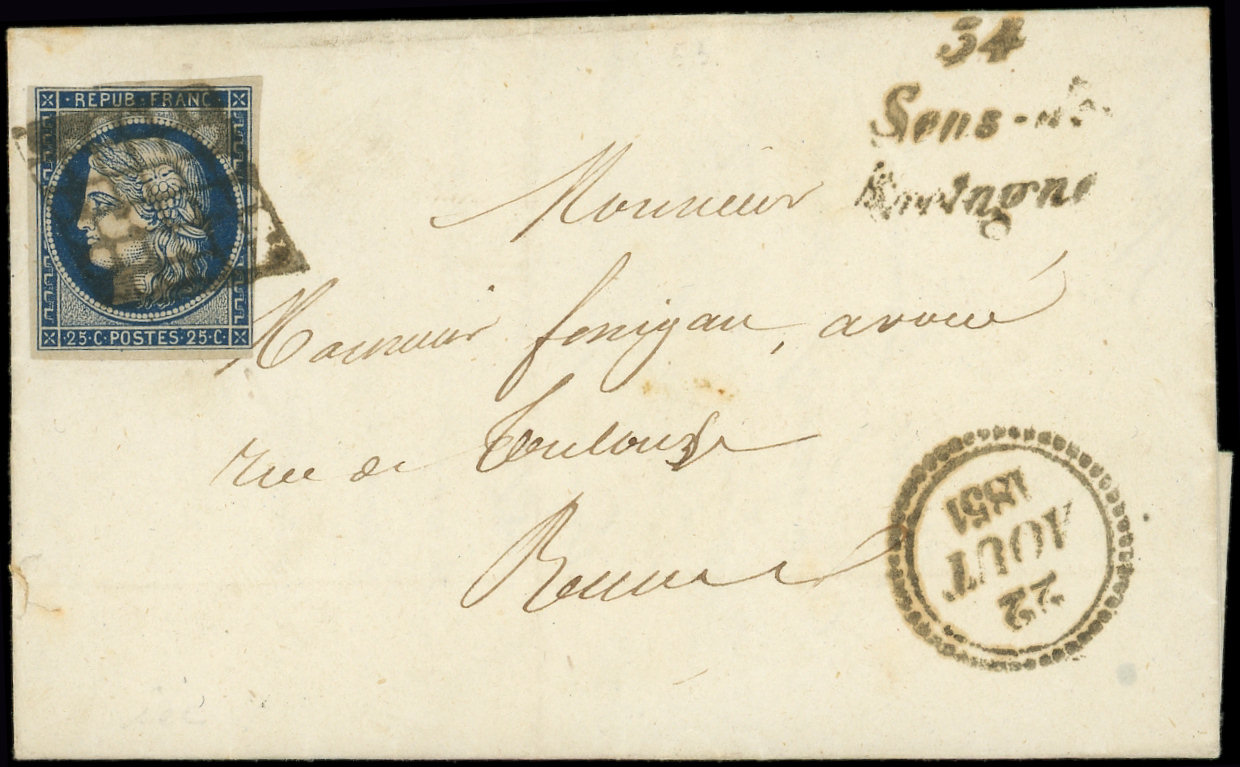 REPUB·FRANC
25·C·POSTES·25·C
34
Sens-de
Bretagne
Monsieur
Monsieur
avoué
rue de Toulouse
Rennes
22
AOUT
1851